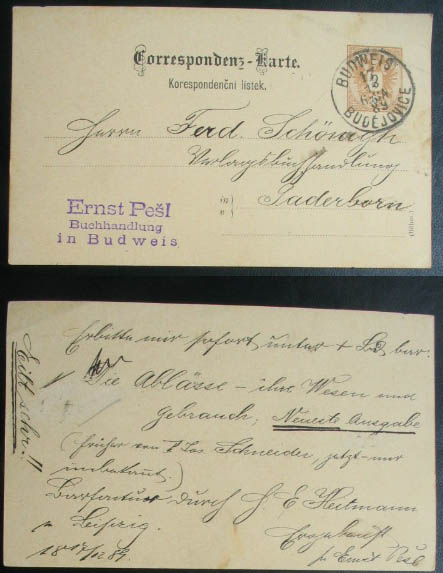 Correspondenz-Karte.
Korespondenční lístek.
BUDWEIS
BUDĚJOVICE
Herrn Ferd. Schöningh
Verlagsbuchhandlung
in
v
Paderborn
(Böhm.)
Ernst Pešl
Buchhandlung
in Budweis
Eilt sehr!!
Erbitte mir sofort unter + bar:
Die Ablässe - ihre Wesen und
Gebrauch, Neueste Ausgabe
(früher von P. Jos. Schneider, jetzt - mir
unbekannt.)
Barfactur durch H. E. Heitmann
in Leipzig.
Ergebenst
18 17/12 89.
p. Ernst Pešl